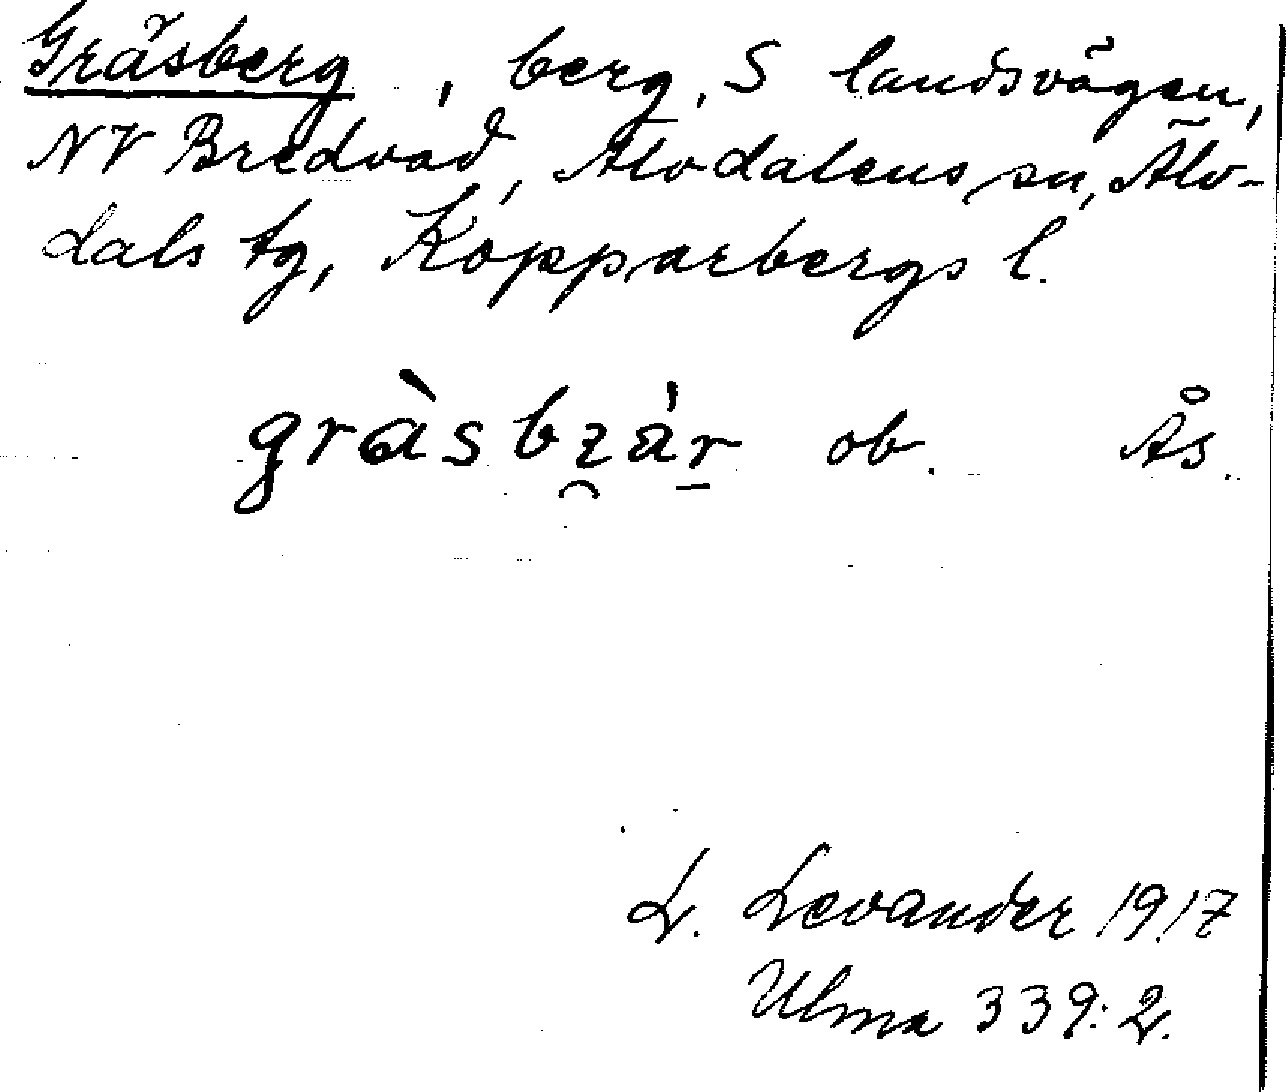 Gräsberg, berg, S landsvägen,
NV Bredvad, Älvdalens sn, Älv-
dals tg, Kopparbergs l.
gràsbz̯ár̠ ob. Ås.
L. Levander 1917
Ulma 339:2.